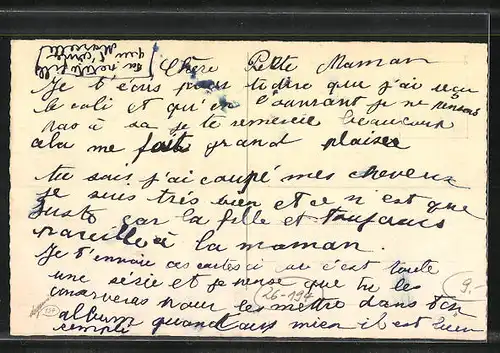 Chère Petite Maman
Je t'écris pour te dire que j'ai reçu
le coli et qu'en l'ouvrant je ne pensais
pas à sa je te remercie beaucoup
cela me fait grand plaiser
tu sais j'ai coupé mes cheveux
je suis très bien et ce n'est que
juste car la fille et toujours
pareille à la maman.
Je t'envoie ces cartes c'est toute
une série et je pense que tu les
conserveras pour les mettre dans ton
album quand au mien il est bien
rempli
ta petite fille
qui t'aime
Marcelle
(26-194
9.-